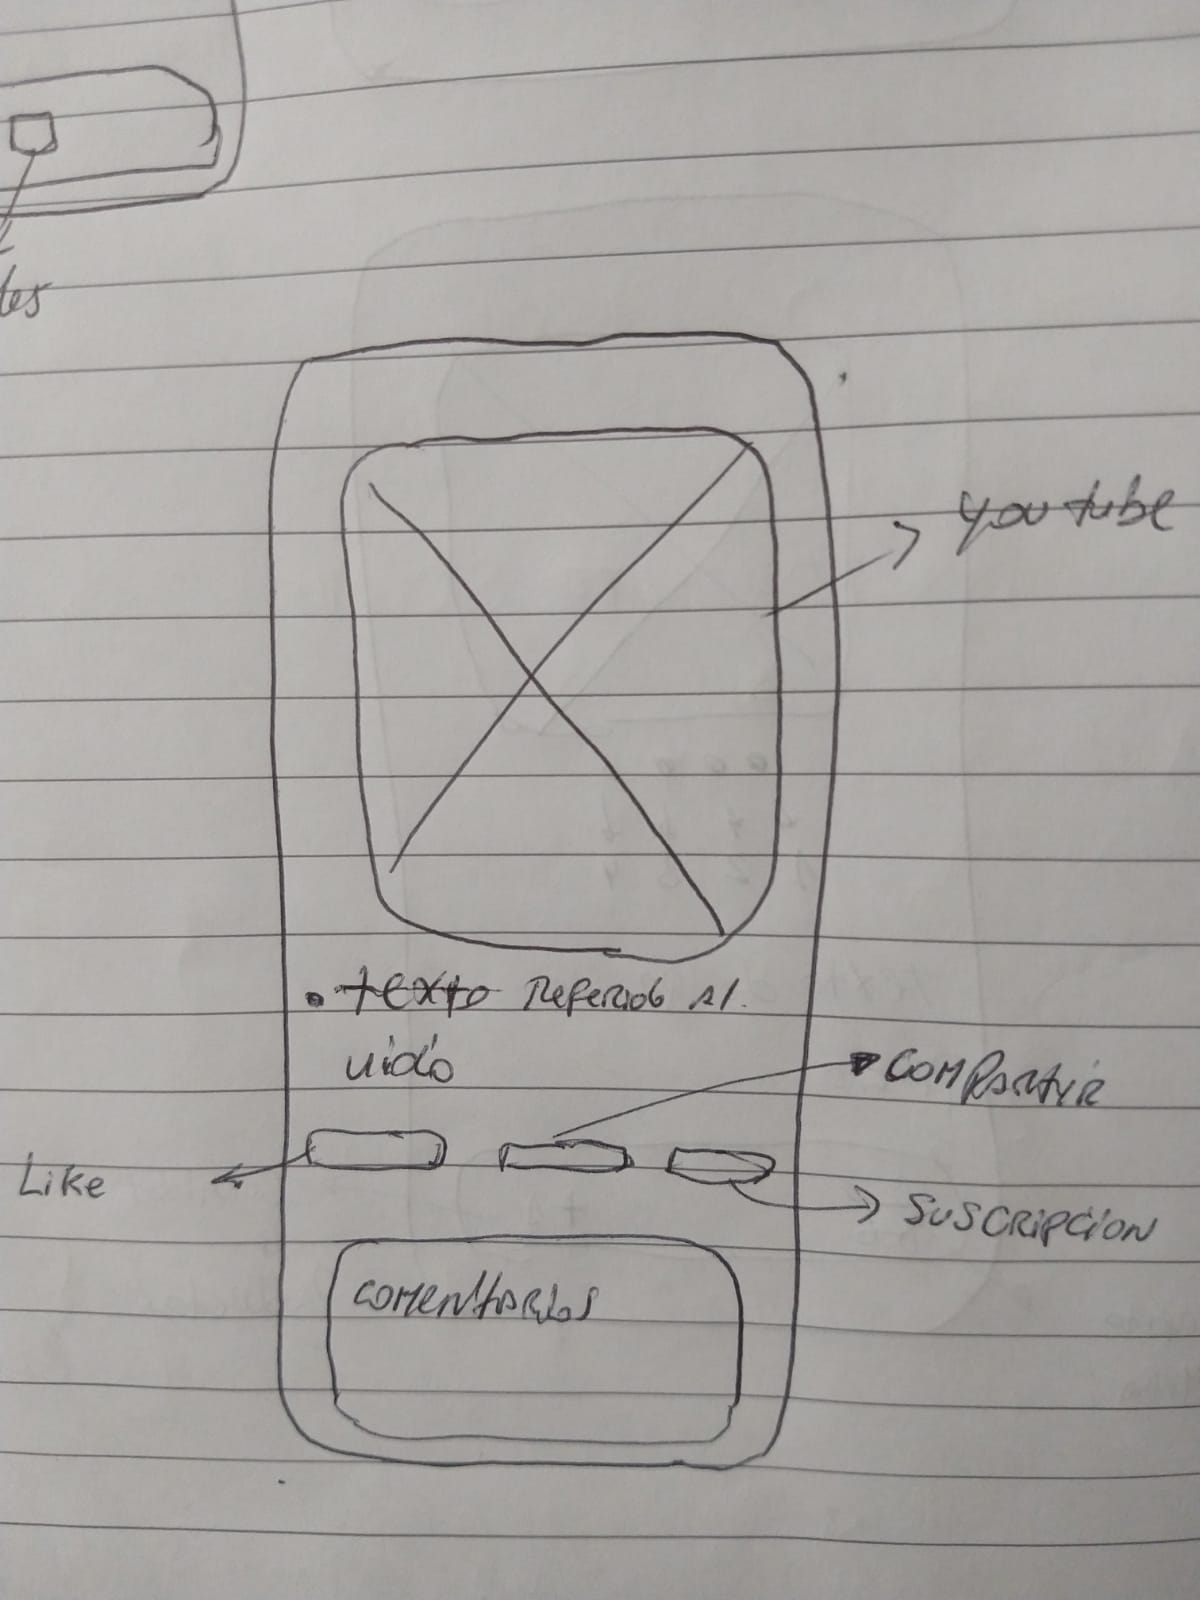 youtube
• texto Referido Al.
vido
COMPARtir
Like
SUSCRIPCION
COMENtARIOS